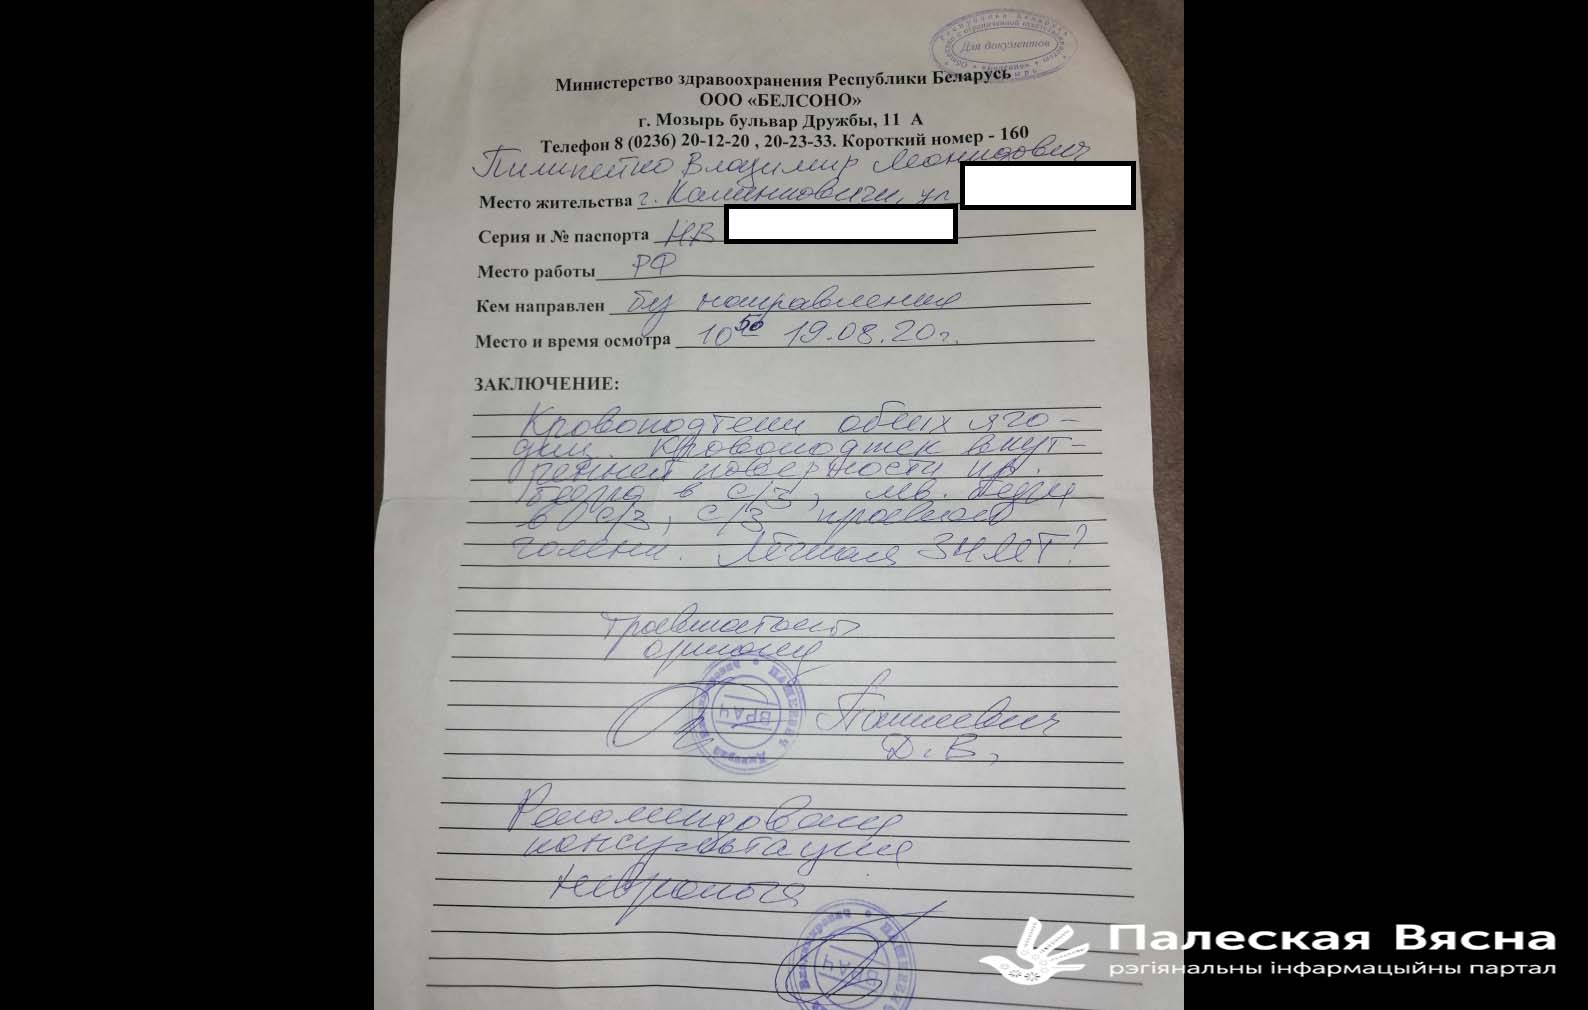 Республика Беларусь
Для документов
Министерство здравоохранения Республики Беларусь
ООО «БЕЛСОНО»
г. Мозырь бульвар Дружбы, 11 А
Телефон 8 (0236) 20-12-20 , 20-23-33. Короткий номер - 160
Пилипейко Владимир Леонидович
Место жительства г. Калинковичи, ул
Серия и № паспорта НВ
Место работы РФ
Кем направлен без направления
Место и время осмотра 10 50 19.08.20г.
ЗАКЛЮЧЕНИЕ:
Кровоподтеки обеих яго-
диц. Кровоподтек внут-
ренней поверхности пр.
бедра в с/з, лев. бедра
в с/з, с/з правой
голени. Легкая ЗЧМТ?
Травматолог
ортопед
ВРАЧ
ПАШКЕВИЧ
Пашкевич
Д. В.
Рекомендована
консультация
невролога
Палеская Вясна
рэгіянальны інфармацыйны партал